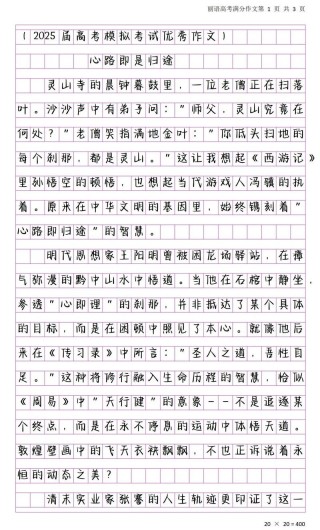 丽语高考满分作文第 1 页 共 3 页
（2025届高考模拟考试优秀作文）
心路即是归途
灵山寺的晨钟暮鼓里，一位老僧正在扫落
叶。沙沙声中有弟子问："师父，灵山究竟在
何处？"老僧笑指满地金叶："你低头扫地的
每个刹那，都是灵山。"这让我想起《西游记》
里孙悟空的顿悟，也想起当代游戏人冯骥的执
着。原来在中华文明的基因里，始终镌刻着"
心路即归途"的智慧。
明代思想家王阳明曾被困龙场驿站，在瘴
气弥漫的黔中山水中悟道。当他在石棺中静坐，
参透"心即理"的刹那，并非抵达了某个具体
的目标，而是在困顿中照见了本心。就像他后
来在《传习录》中所言："圣人之道，吾性自
足。"这种将修行融入生命历程的智慧，恰似
《周易》中"天行健"的意象--不是追逐某
个终点，而是在永不停息的运动中体悟天道。
敦煌壁画中的飞天衣袂飘飘，不也正诉说着永
恒的动态之美？
清末实业家张謇的人生轨迹更印证了这一
20 × 20 = 400